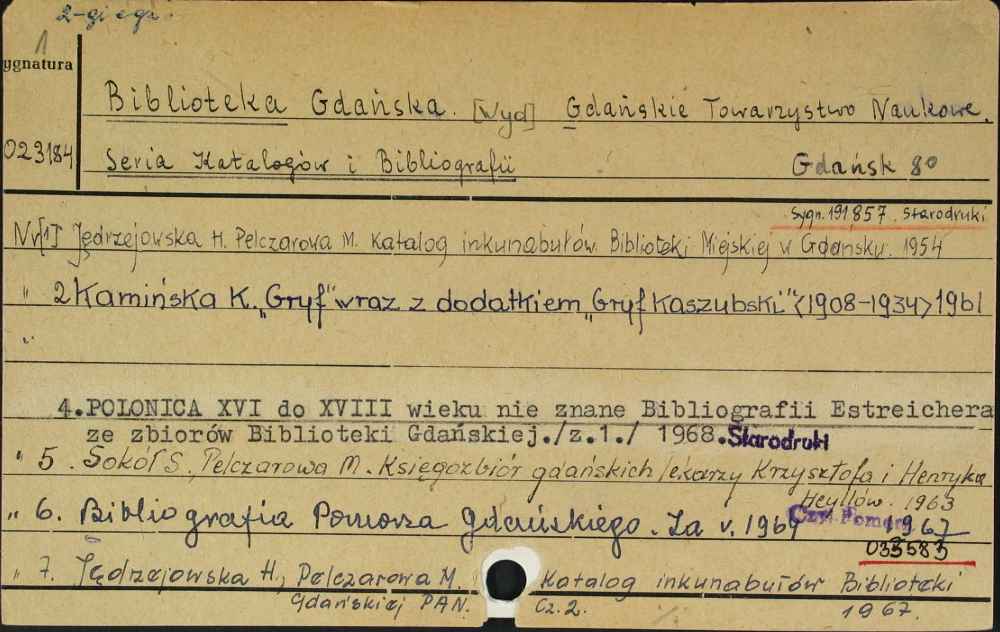 2-gi egz.
1
ygnatura
Biblioteka Gdańska. [Wyd] Gdańskie Towarzystwo Naukowe.
023184
Seria Katalogów i Bibliografii Gdańsk 80
Sygn. 191857. Starodruki
Nr[1] Jędrzejowska H. Pelczarowa M. Katalog inkunabułów Biblioteki Miejskiej w Gdańsku. 1954
" 2 Kamińska K. „Gryf" wraz z dodatkiem „Gryf Kaszubski" <1908-1934> 1961
"
4. POLONICA XVI do XVIII wieku nie znane Bibliografii Estreichera
ze zbiorów Biblioteki Gdańskiej./z.1./ 1968. Starodruki
" 5. Sokół S., Pelczarowa M. Księgozbiór gdańskich lekarzy Krzysztofa i Henryka
Heyllów. 1963
" 6. Bibliografia Pomorza Gdańskiego. Za r. 1964 1967
Czyt. Pomor.
033583
" 7. Jędrzejowska H., Pelczarowa M. Katalog inkunabułów Biblioteki
Gdańskiej PAN. Cz. 2. 1967.